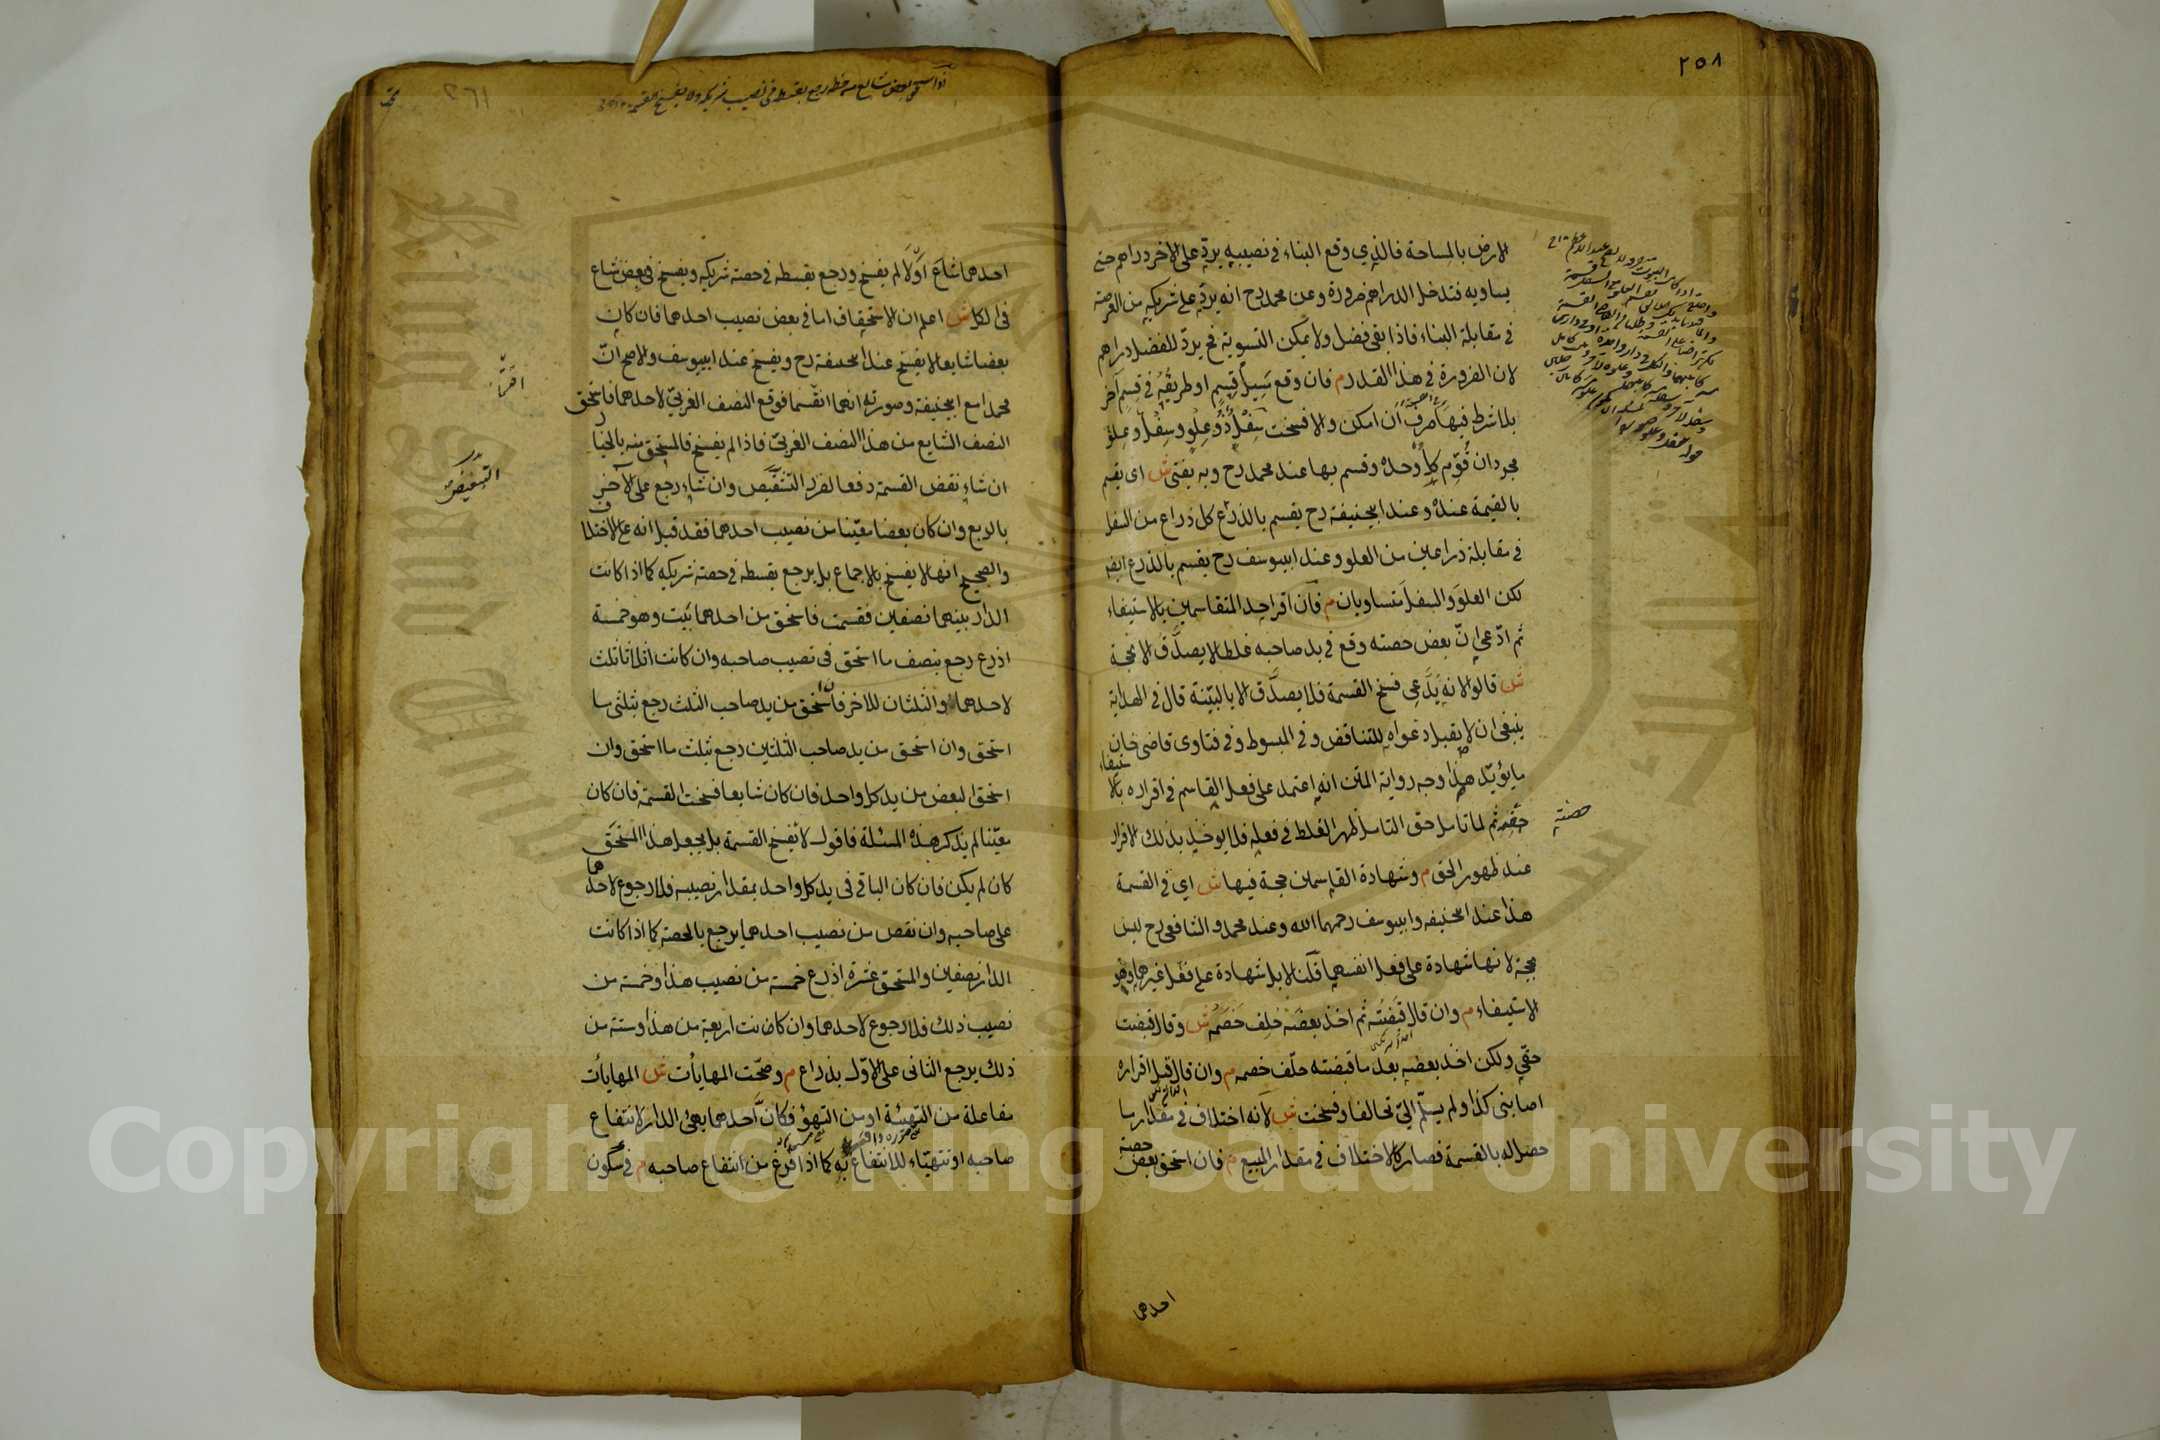 ٢٥٨
الارض بالمساحة فالذي وقع البناء في نصيبه يردّ على الاخر دراهم حتى
يساويه فتدخل الدراهم ضرورة وعن محمد رح انه يردّ على شريكه من العرصة
في مقابلة البناء فاذا بقى فضل ولا يمكن التسوية فح يردّ للفضل دراهم
لان الضرورة في هذا القدر م فان وقع سَيِيلُ قِسمٍ او طريقُهُ في قسمٍ آخر
بلا شرط فيها صُرِفَ ان امكن والا فسخت سِفْلٌ ذُو عِلْوٍ وسِفْلٌ وعِلوٌ
مجردان قُوِّم كلٌ وحده وقسم بها عند محمد رح وبه يفتى ش اى يقسم
بالقيمة عنده وعند ابيحنيفة رح يقسم بالذرع كل ذراع من السفل
في مقابلة ذراعين من العلو وعند ابييوسف رح يقسم بالذرع ايضا
لكن العلو والسفل متساويان م فان اقر احد المتقاسمين بالاستيفاء
ثم ادّعى انّ بعض حصته وقع في يد صاحبه غلطا لا يصدَّق الا بحجة
ش قالوا لانه يَدَّعى فسخ القسمة فلا يصدَّق الا بالبيّنة قال في الهداية
ينبغى ان لا يقبل دعواه للتناقض وفي المبسوط وفي فتاوى قاضى خان
ما يؤيّد هذا وجه رواية المتن انه اعتمد على فعل القاسم في اقراره بالا
ستيفاء
حقه ثم لما تامل حق التامل ظهر الغلط في فعله فلا يوخذ بذلك الاقرار
عند ظهور الحق م وشهادة القاسمين حجة فيها ش اي في القسمة
هذا عند ابيحنيفه وابييوسف رحمهما الله وعند محمد والشافعى رح ليس
بحجة لانها شهادة على فعل انفسهما قلنا لا بل شهادة على فعل غيرهما وهو
الاستيفاء م وان قال قَبَضْتُه ثم اخذ بعضَه حُلِف خَصْمُه ش وقال قبضت
حقّي ولكن اخذ بعضه بعد ما قبضته حلّف خصمه م وان قال قبل اقراره
اصابنى كذا ولم يسلّم الىّ تحالفا وفسخت ش لانه اختلاف في مقدار ما
حصل له بالقسمة فصار كالاختلاف في مقدار المبيع م فان استحق بعض
حصة
احدهما
احدهما شاعَ اوّلًا لم يفسخ ورجع بقسطه في حصة شريكه ويفسخ في بعض شاع
في الكل ش اعلم ان الاستحقاق اما في بعض نصيب احدهما فان كان
بعضا شايعا لا يفسخ عند ابيحنيفة رح ويفسخ عند ابييوسف والاصح انّ
محمدا مع ابيحنيفة وصورته انهما اقتسما فوقع النصف الغربيّ لاحدهما فاستحق
النصف الشايع من هذا النصف الغربيّ فاذا لم يفسخ فالمستحق منه بالخيار
ان شاء نقض القسمة دفعا لضرر التنقيص وان شاء رجع على الآخر
بالربع وان كان بعضا معّينا من نصيب احدهما فقد قيل انه على الاختلاف
والصحيح انها لا يفسخ بالاجماع بل يرجع بقسطه في حصة شريكه كما اذا كانت
الدار بينهما نصفين فقسمت فاستحق من احدهما بيت وهو خمسة
اذرع رجع بنصف ما استحق فى نصيب صاحبه وان كانت اثلاثا ثلث
لاحدهما والثلثان للاخر فان استحق من يد صاحب الثلث رجع بثلثى ما
استحق وان استحق من يد صاحب الثلثين رجع بثلث ما استحق وان
استحق البعض من يد كل واحد فان كان شايعا فسخت القسمة فان كان
معّينا لم يذكر هذه المسئلة فاقول لا يفسخ القسمة بل يجعل هذا المستحق
كان لم يكن فان كان الباقي فى يد كل واحد بمقدار نصيبه فلا رجوع لاحدهما
على صاحبه وان نقص من نصيب احدهما يرجع بالحصة كما اذا كانت
الدار نصفين والمستحق عشرة اذرع خمسة من نصيب هذا وخمسة من
نصيب ذلك فلا رجوع لاحدهما وان كانت اربعة من هذا وستة من
ذلك يرجع الثانى على الاوّل بذراع م وصحّت المهايأت ش المهايأت
مفاعلة من التهيئة او من التهيؤ فكانَّ احدهما يهئ الدار لانتفاع
صاحبه او تتهيّاء للانتفاع به كما اذا فرغ من انتفاع صاحبه م في سكون